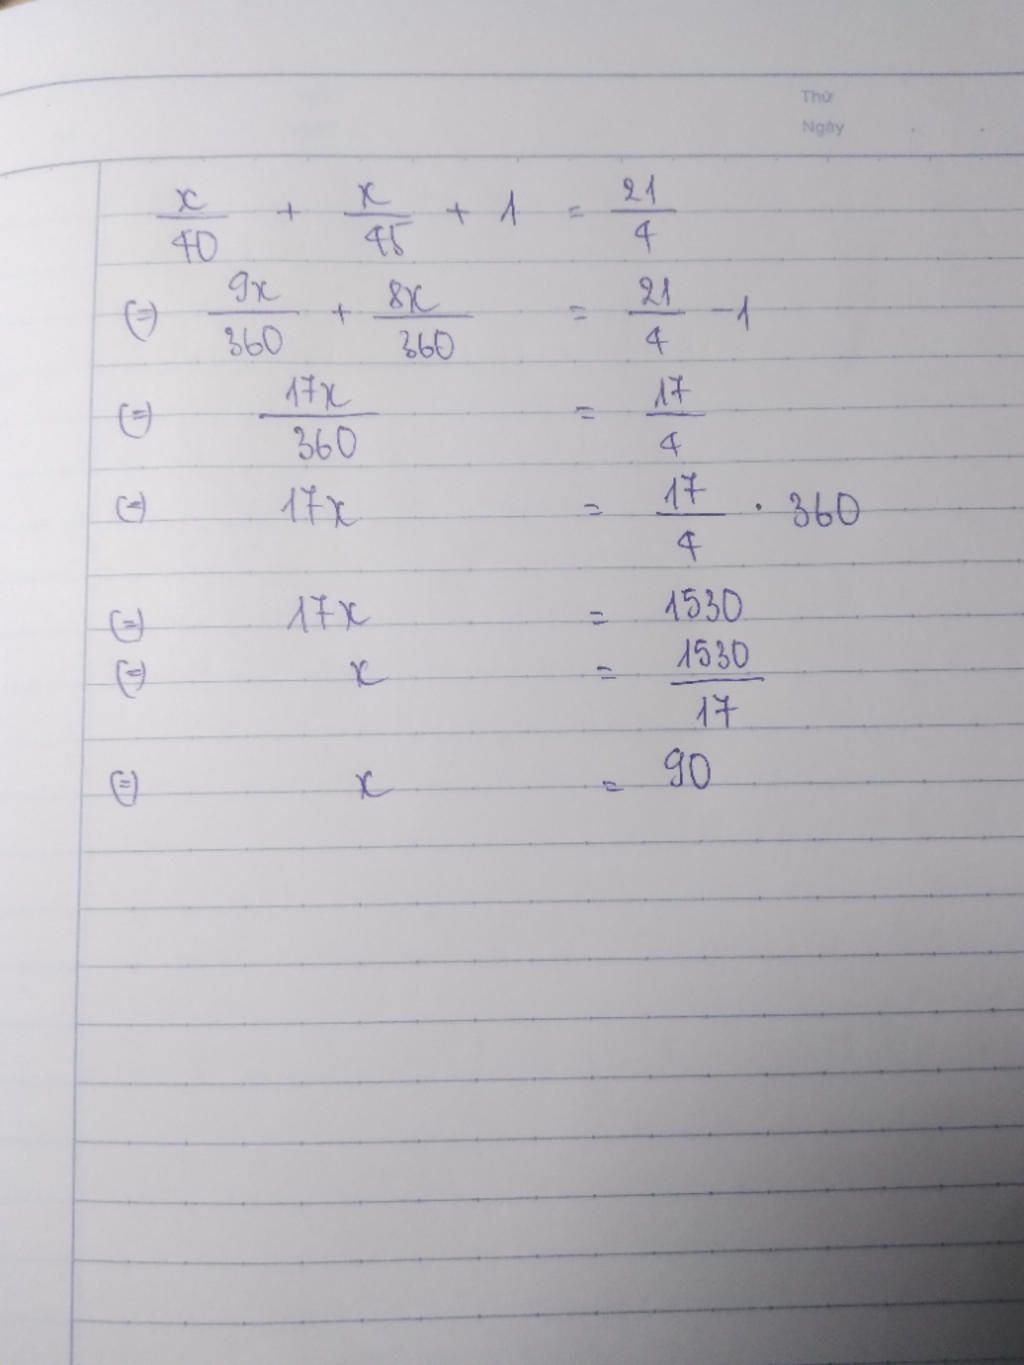 Thứ
Ngày
x/40 + x/45 + 1 = 21/4
(=) 9x/360 + 8x/360 = 21/4 - 1
(=) 17x/360 = 17/4
(=) 17x = 17/4 . 360
(=) 17x = 1530
(=) x = 1530/17
(=) x = 90